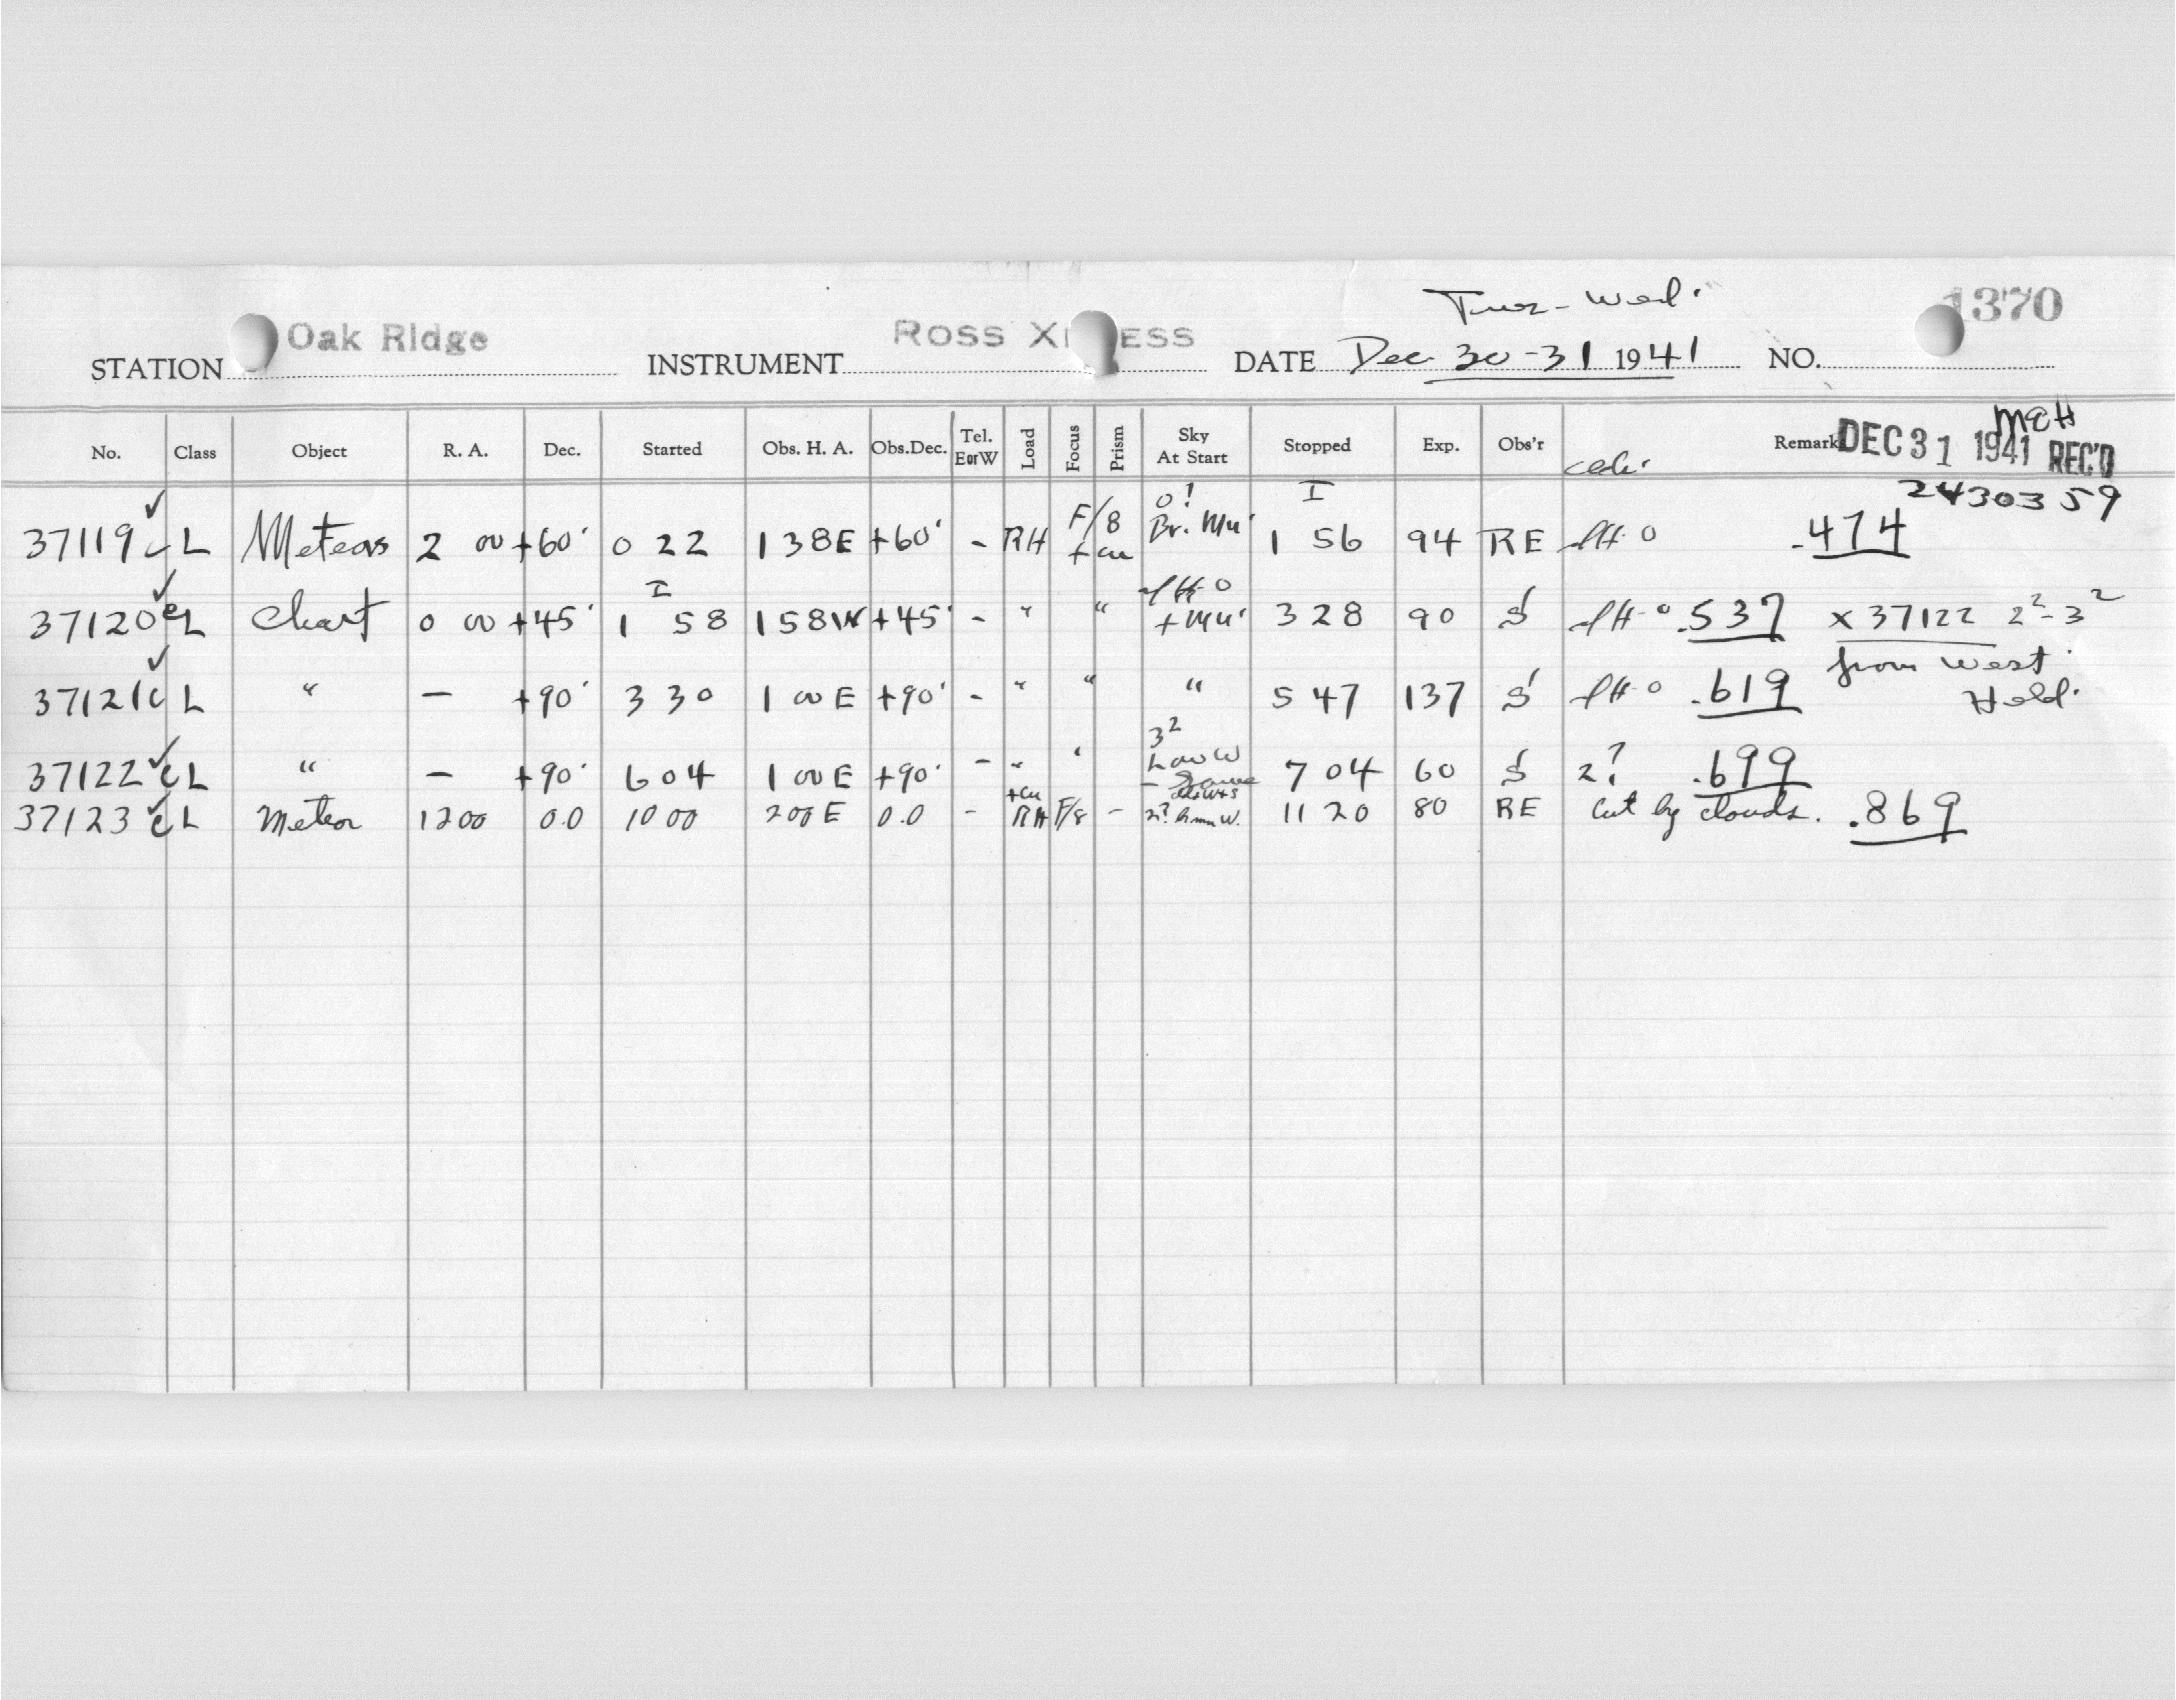 Tues - Wed.
1370
STATION Oak Ridge INSTRUMENT ROSS X ESS DATE Dec. 30-31 1941 NO.
No. Class Object R. A. Dec. Started Obs. H. A. Obs.Dec. Tel. EorW Load Focus Prism Sky At Start Stopped Exp. Obs'r Remark
DEC 31 1941 REC'D
McH
2430359
37119 c L Meteors 2 00 +60° 0 22 1 38E +60° - RH F/8 0! Br. Mn. 1 56 94 RE 0 .474
37120 c L Chart 0 00 +45° 1 58 1 58W +45° - " " 0 + Mn. 3 28 90 S 0 .537 x 37122 2²-3²
from West.
37121 c L " — +90° 3 30 1 00 E +90° - " " " 5 47 137 S 0 .619 Held.
37122 c L " — +90° 6 04 1 00 E +90° - " " 3² Low W 7 04 60 S 2? .699
37123 c L Meteor 12 00 0.0 10 00 2 00 E 0.0 - RH F/8 - 11 20 80 RE Cut by clouds. .869